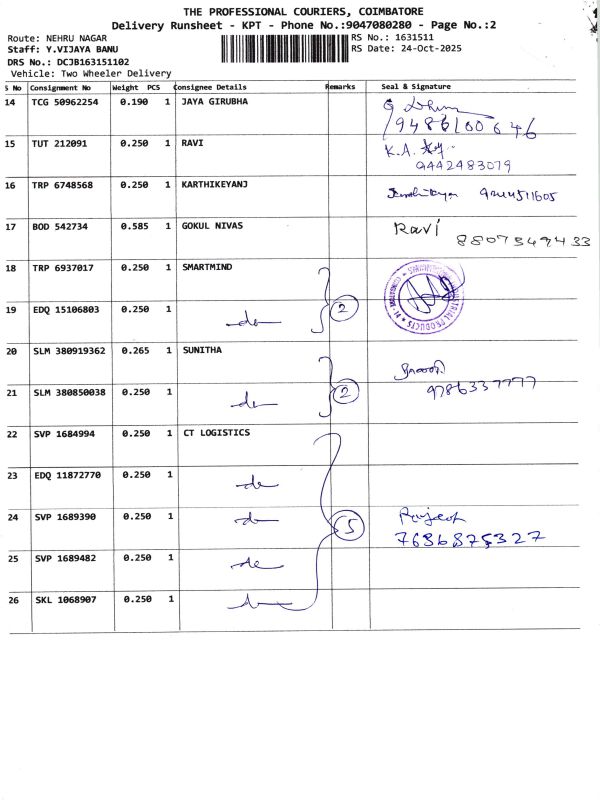 THE PROFESSIONAL COURIERS, COIMBATORE
Delivery Runsheet - KPT - Phone No.:9047080280 - Page No.:2
Route: NEHRU NAGAR RS No.: 1631511
Staff: Y.VIJAYA BANU RS Date: 24-Oct-2025
DRS No.: DCJB163151102
Vehicle: Two Wheeler Delivery
S No Consignment No Weight PCS Consignee Details Remarks Seal & Signature
14 TCG 50962254 0.190 1 JAYA GIRUBHA
9486100646
15 TUT 212091 0.250 1 RAVI K.A.
9442483079
16 TRP 6748568 0.250 1 KARTHIKEYANJ
17 BOD 542734 0.585 1 GOKUL NIVAS Ravi
8807549433
18 TRP 6937017 0.250 1 SMARTMIND
19 EDQ 15106803 0.250 1 do 2
20 SLM 380919362 0.265 1 SUNITHA
21 SLM 380850038 0.250 1 do 2 9786337777
22 SVP 1684994 0.250 1 CT LOGISTICS
23 EDQ 11872770 0.250 1 do
24 SVP 1689390 0.250 1 do 5 Rajesh
7686875327
25 SVP 1689482 0.250 1 do
26 SKL 1068907 0.250 1 do